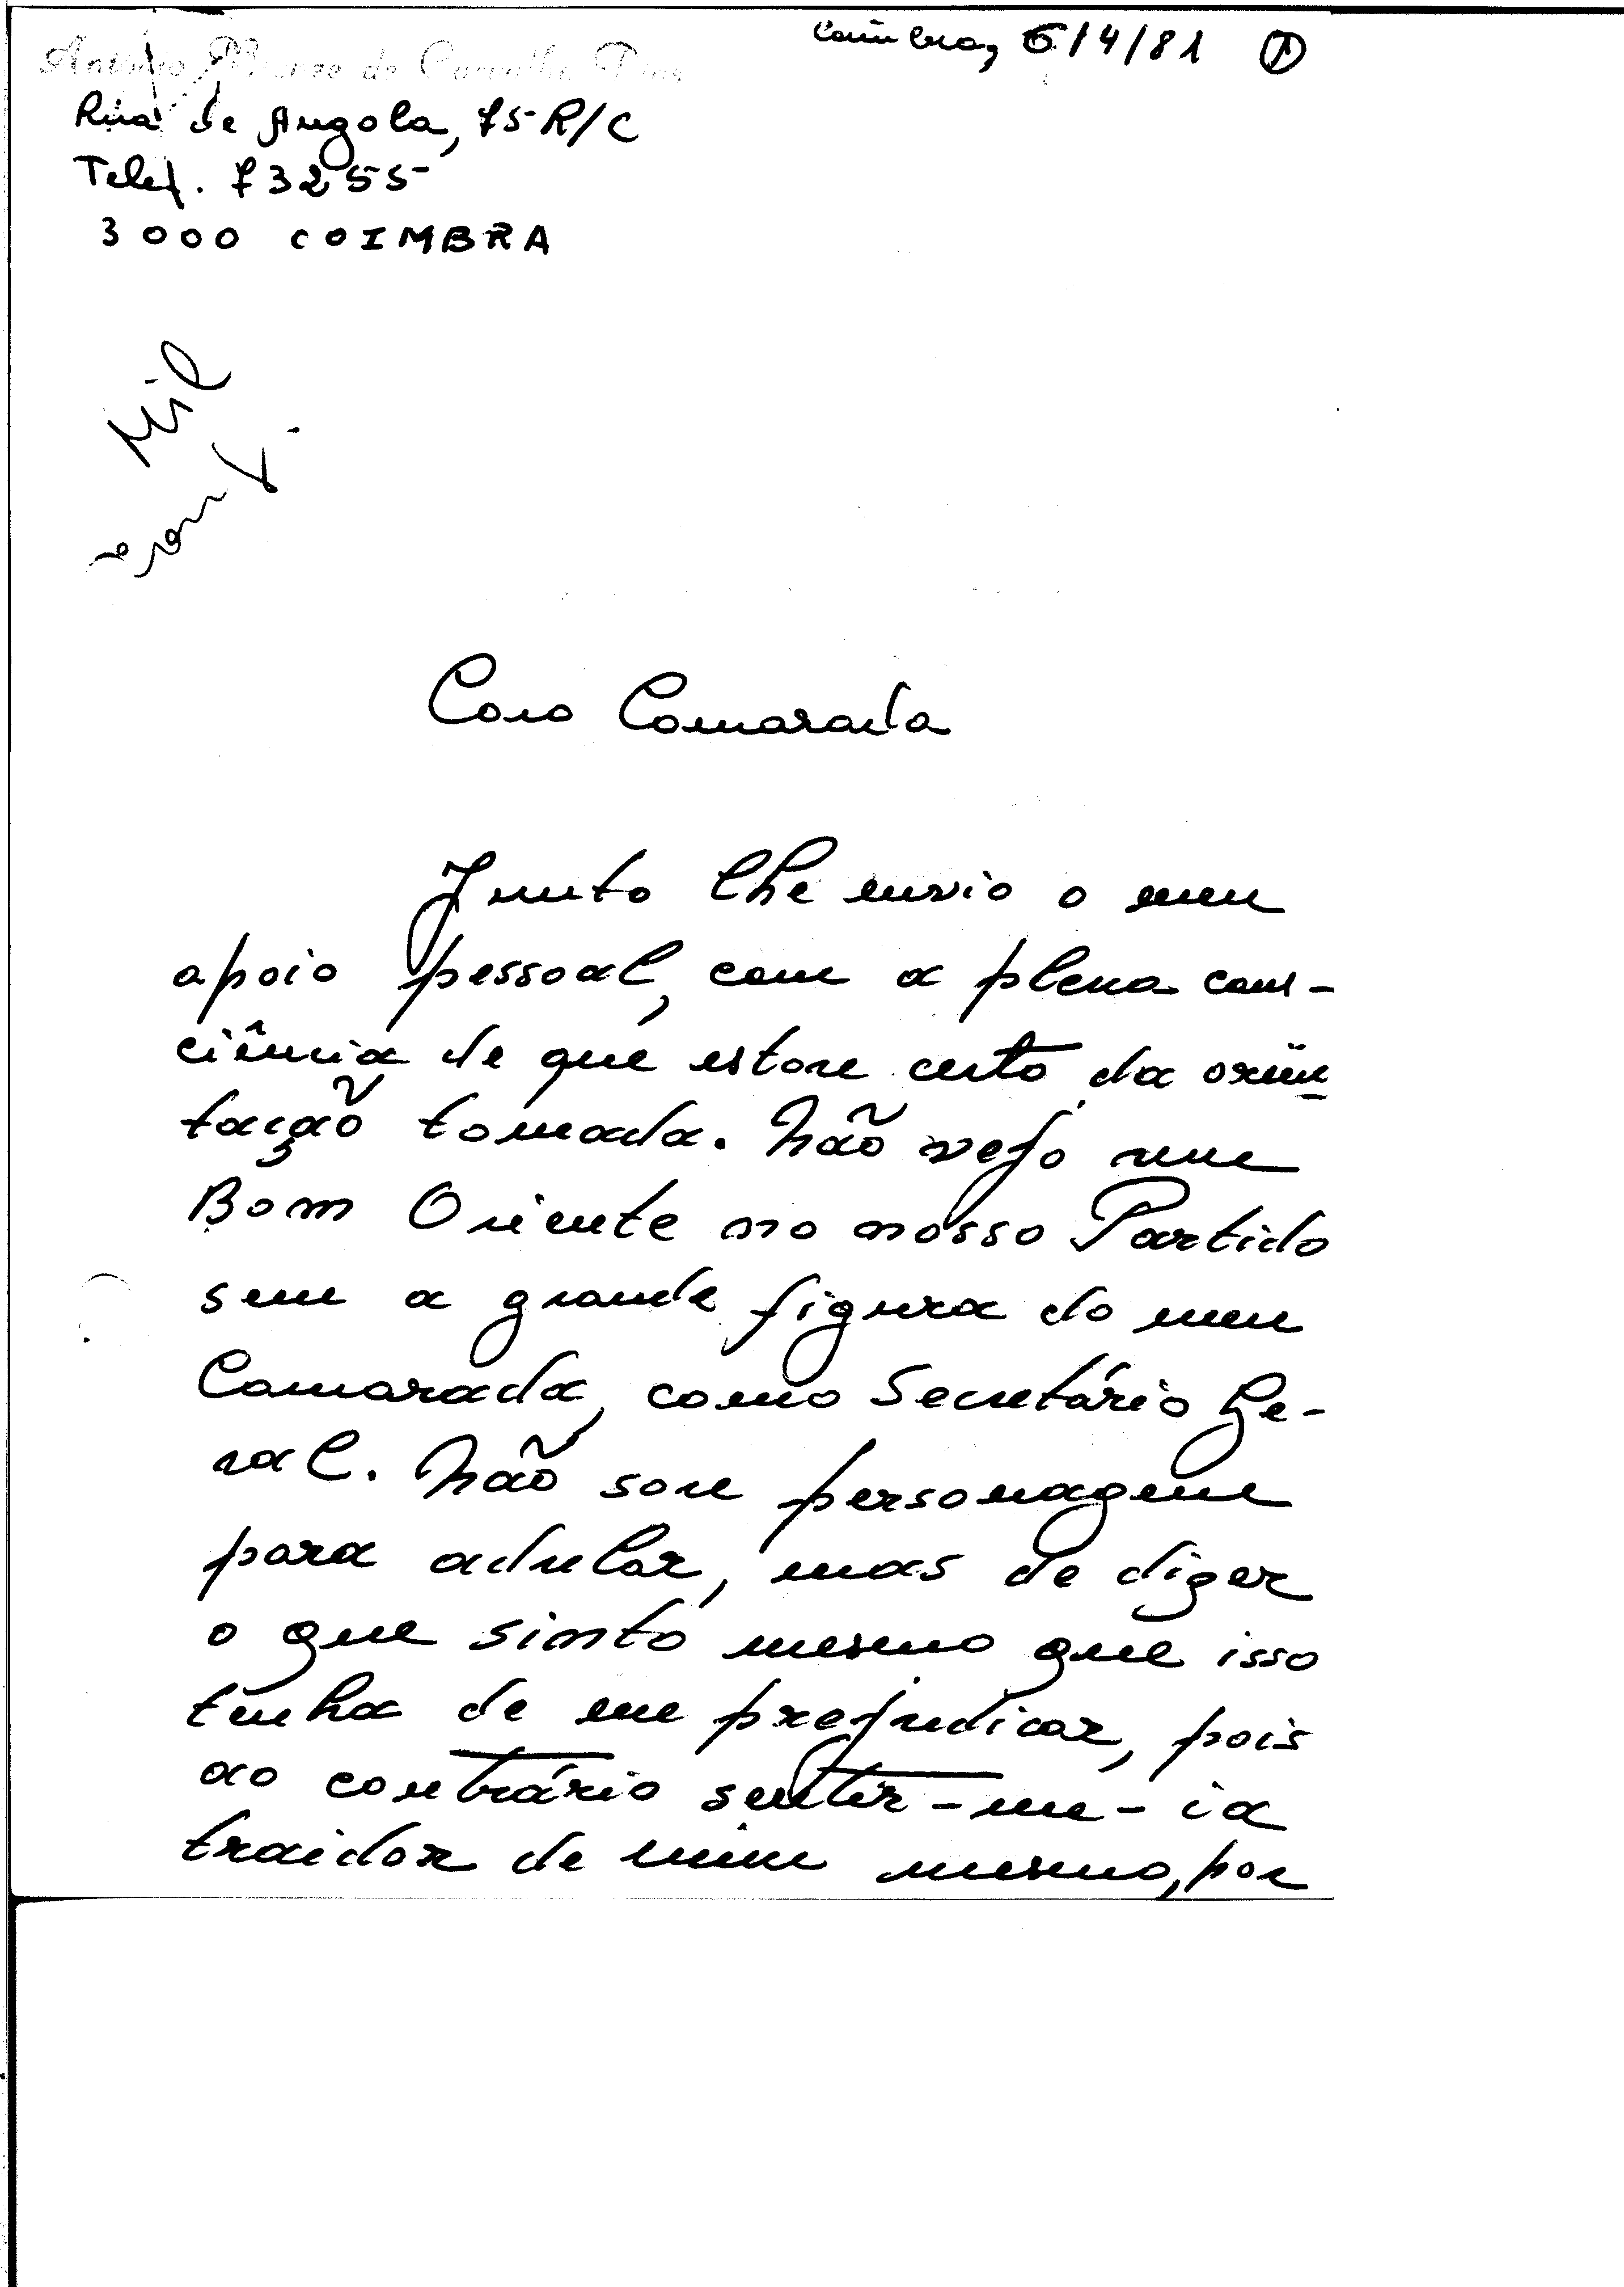 Coimbra, 6/4/81 1
António de Carvalho Dias
Rua de Angola, 75-R/C
Telef. 73255
3000 COIMBRA
Caro Camarada
Junto lhe envio o meu
apoio pessoal, com a plena cons-
ciência de que estou certo da orien-
tação tomada. Não vejo um
Bom Oriente no nosso Partido
sem a grande figura do meu
Camarada, como Secretário Ge-
ral. Não sou personagem
para adular, mas de dizer
o que sinto mesmo que isso
tenha de me prejudicar, pois
ao contrário sentir-me-ia
traidor de mim mesmo, por